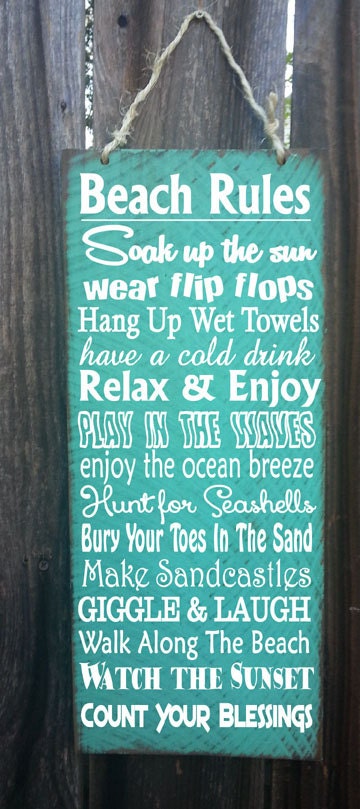 Beach Rules
Soak up the sun
wear flip flops
Hang Up Wet Towels
have a cold drink
Relax & Enjoy
PLAY IN THE WAVES
enjoy the ocean breeze
Hunt for Seashells
Bury Your Toes In The Sand
Make Sandcastles
GIGGLE & LAUGH
Walk Along The Beach
WATCH THE SUNSET
COUNT YOUR BLESSINGS